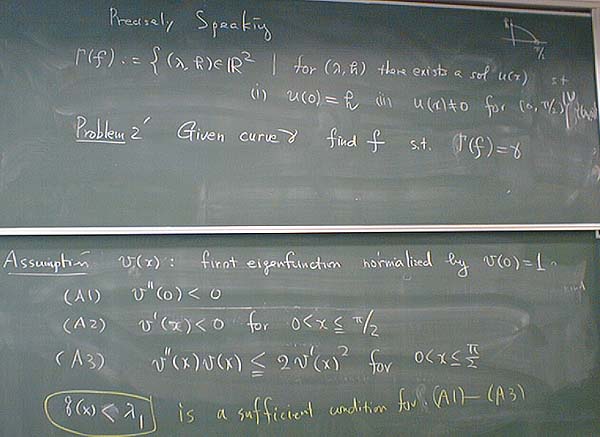 Precisely Speaking
h
π/2
Γ(f) := { (λ, h) ∈ ℝ² | for (λ, h) there exists a sol u(x) s.t
(i) u(0) = h (ii) u(x) ≠ 0 for [0, π/2)
Problem 2' Given curve γ find f s.t. Γ(f) = γ
Assumption v(x) : first eigenfunction normalized by v(0) = 1
(A1) v''(0) < 0
(A2) v'(x) < 0 for 0 < x ≦ π/2
(A3) v''(x)v(x) ≦ 2v'(x)² for 0 < x ≦ π/2
q(x) < λ₁ is a sufficient condition for (A1) – (A3)